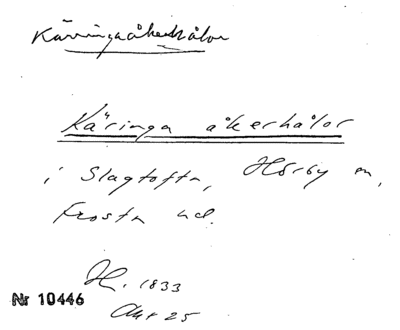 Käringaåkerhålor
Käringa åkerhålor
i Slagtofta, Hörby sn,
Frosta hd.
H. 1833
Nr 10446
Akt 25